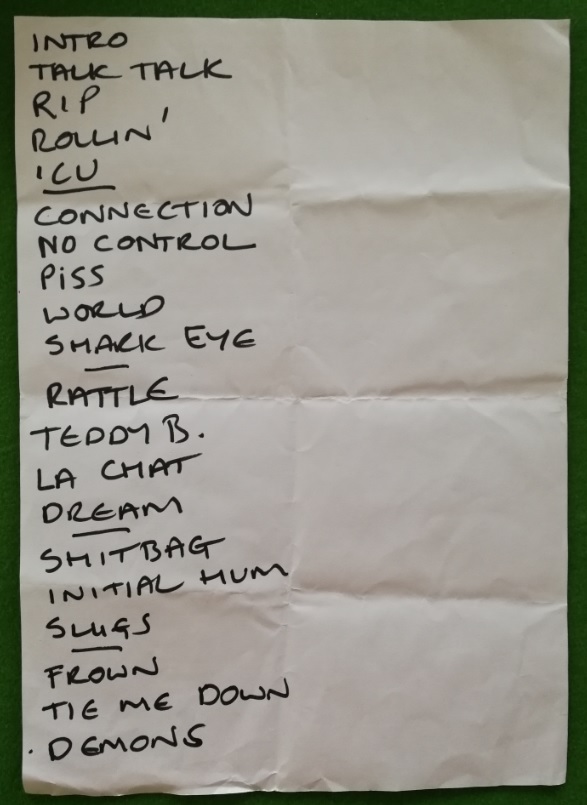 INTRO
TALK TALK
RIP
ROLLIN'
ICU
CONNECTION
NO CONTROL
PISS
WORLD
SHARK EYE
RATTLE
TEDDY B.
LA CHAT
DREAM
SHITBAG
INITIAL HUM
SLUGS
FROWN
TIE ME DOWN
. DEMONS